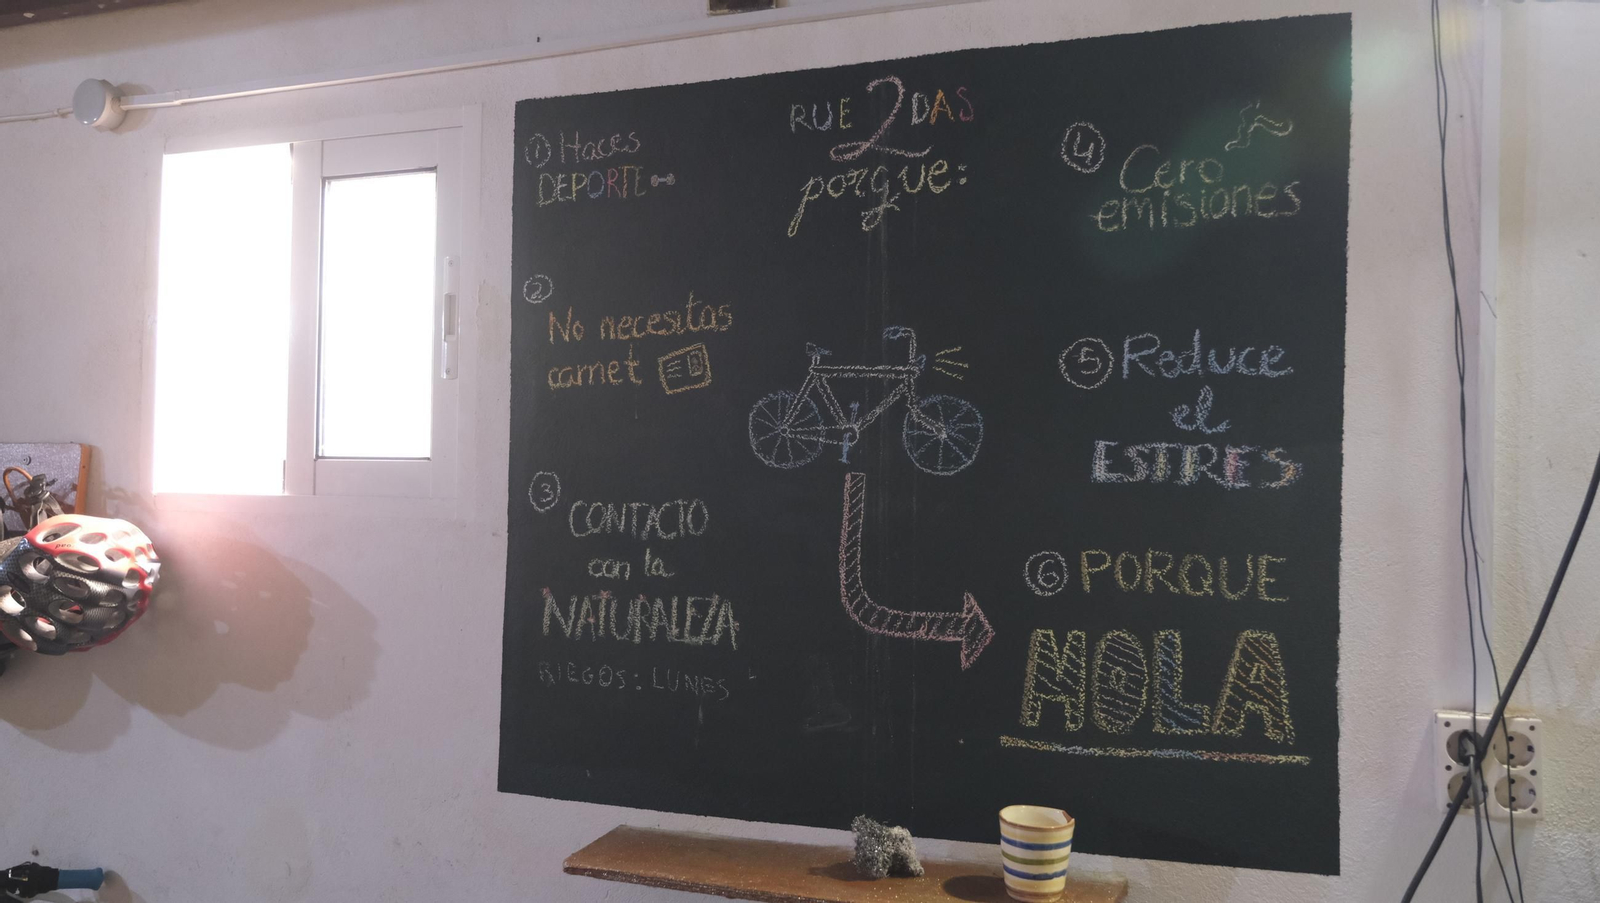 RUE2DAS
porque:
① Haces
DEPORTE
②
No necesitas
carnet
③
CONTACTO
con la
NATURALEZA
RIEGOS: LUNES
④
Cero
emisiones
⑤ Reduce
el
ESTRES
⑥ PORQUE
MOLA